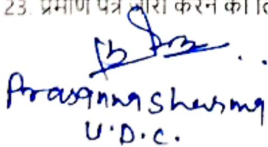 23. प्रमाण पत्र जारी करने का
Prasanna Sharma
U.D.C.